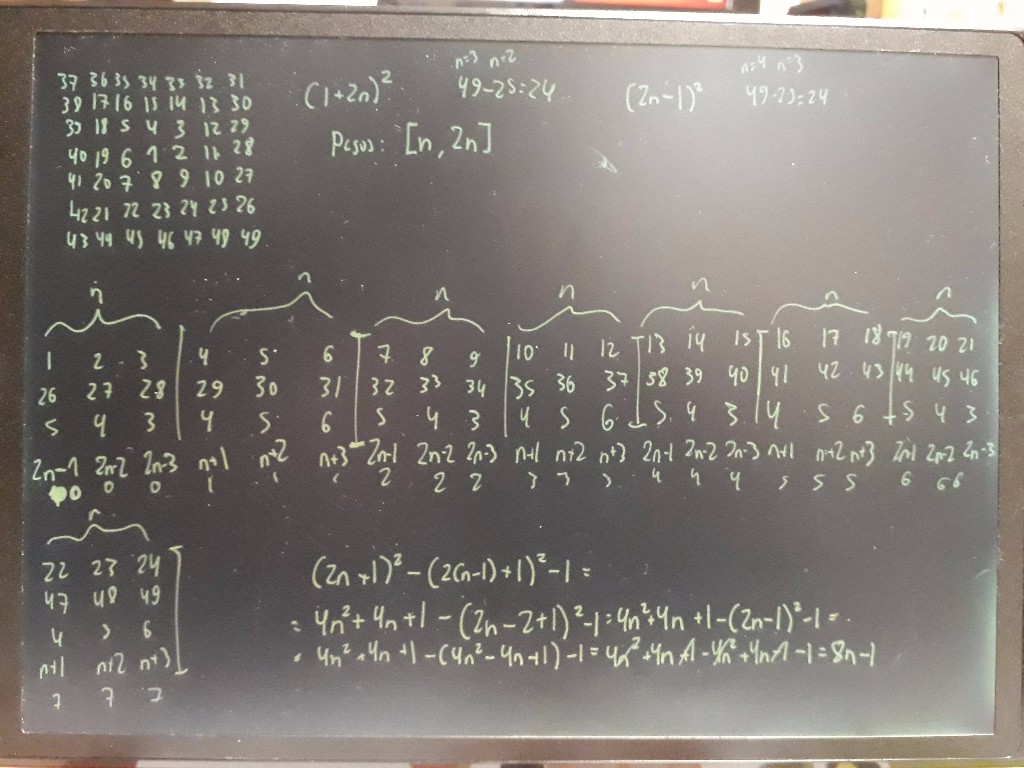 37 36 35 34 33 32 31
38 17 16 15 14 13 30
39 18 5 4 3 12 29
40 19 6 1 2 11 28
41 20 7 8 9 10 27
42 21 22 23 24 25 26
43 44 45 46 47 48 49
(1+2n)²
n=3 n=2
49-25=24
(2n-1)²
n=4 n=3
49-25=24
Pasos: [n, 2n]
n n n n n n n
1 2 3 4 5 6 7 8 9 10 11 12 13 14 15 16 17 18 19 20 21
26 27 28 29 30 31 32 33 34 35 36 37 38 39 40 41 42 43 44 45 46
5 4 3 4 5 6 5 4 3 4 5 6 5 4 3 4 5 6 5 4 3
2n-1 2n-2 2n-3 n+1 n+2 n+3 2n-1 2n-2 2n-3 n+1 n+2 n+3 2n-1 2n-2 2n-3 n+1 n+2 n+3 2n-1 2n-2 2n-3
0 0 0 1 1 1 2 2 2 3 3 3 4 4 4 5 5 5 6 6 6
n
22 23 24
47 48 49
4 5 6
n+1 n+2 n+3
7 7 7
(2n+1)²-(2(n-1)+1)²-1=
= 4n²+4n+1-(2n-2+1)²-1=4n²+4n+1-(2n-1)²-1=
= 4n²+4n+1-(4n²-4n+1)-1=4n²+4n+1-4n²+4n-1-1=8n-1